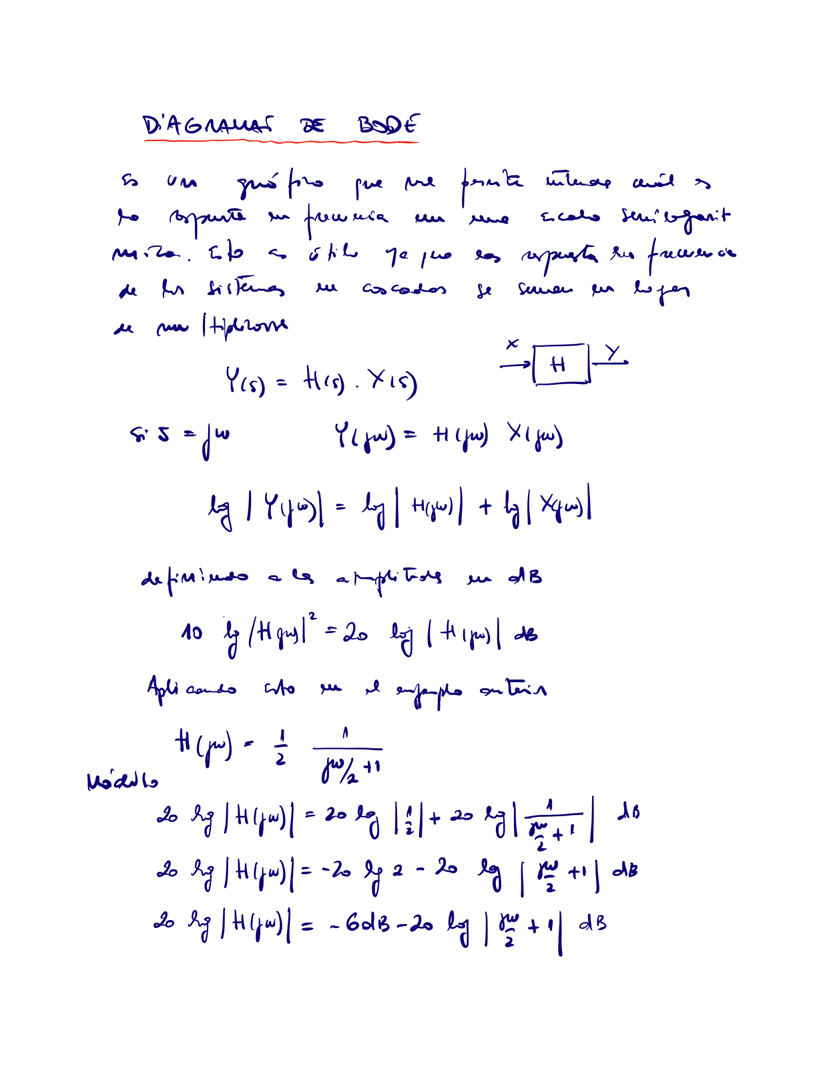 DIAGRAMAS DE BODE
Es un gráfico que me permite entender cuál es
la respuesta en frecuencia en una escala semilogarit
mica. Esto es útil ya que las respuesta en frecuencia
de los sistemas en cascadas se suman en lugar
de
X Y
H
Y(s) = H(s) . X(s)
Si s = jw Y(jw) = H(jw) X(jw)
log |Y(jw)| = log |H(jw)| + log |X(jw)|
definiendo a las amplitudes en dB
10 lg |H(jw)|² = 20 log |H(jw)| dB
Aplicando esto en el ejemplo anterior
H(jw) = 1/2 1/(jw/2 +1)
Módulo
20 log |H(jw)| = 20 log |1/2| + 20 lg |1/(jw/2 + 1)| dB
20 log |H(jw)| = -20 lg 2 - 20 log |jw/2 +1| dB
20 log |H(jw)| = -6dB - 20 log |jw/2 + 1| dB